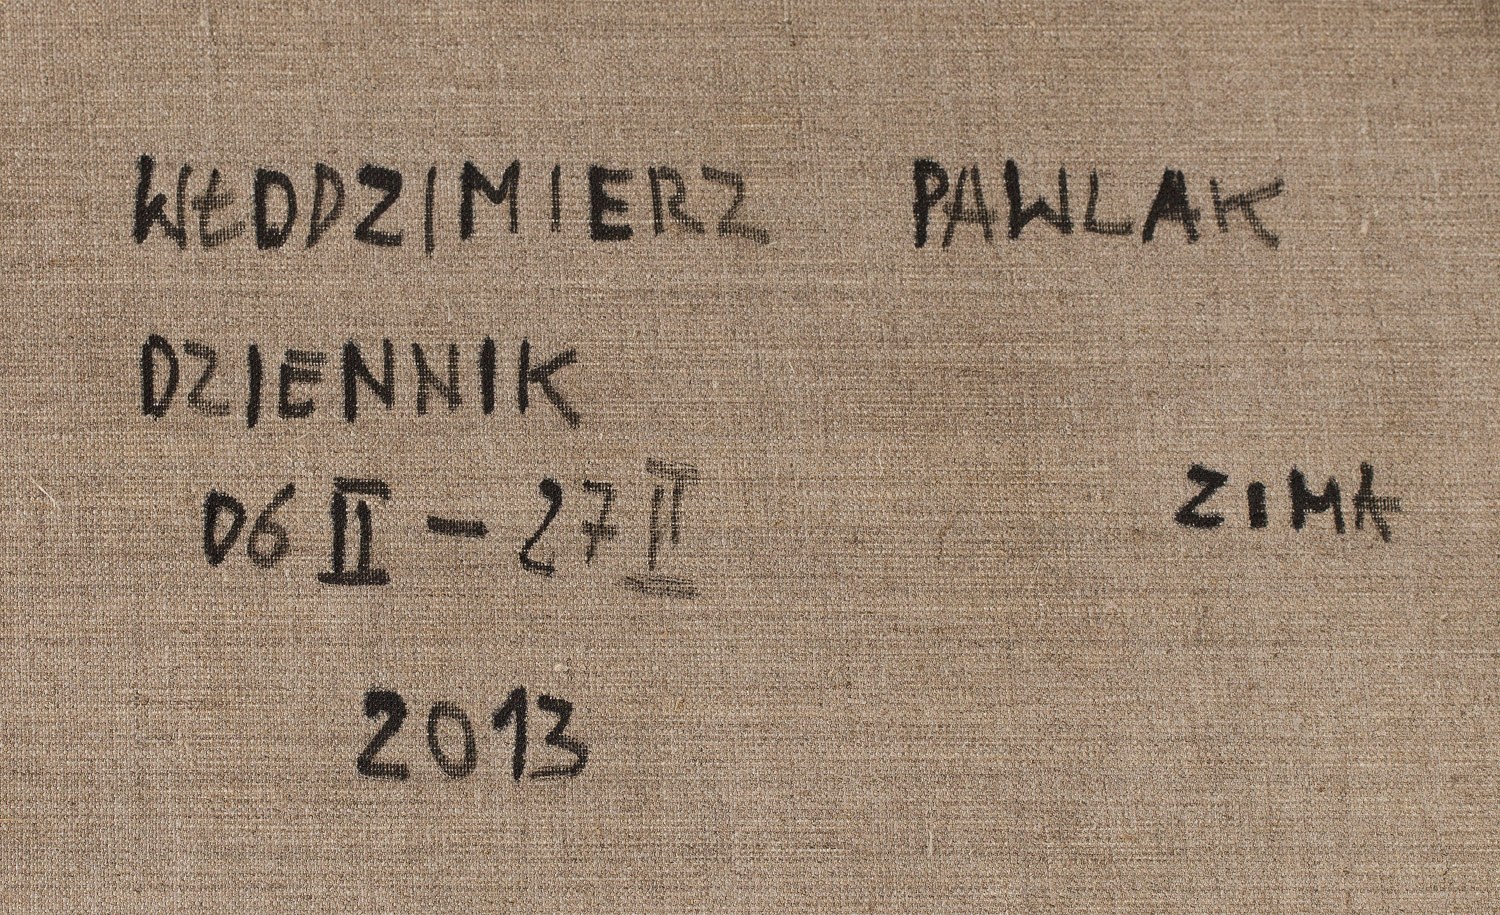 WŁODZIMIERZ PAWLAK
DZIENNIK
06 II – 27 II ZIMA
2013